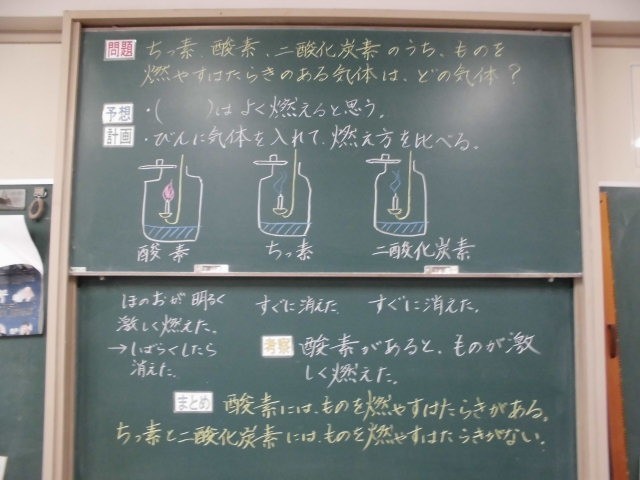 問題 ちっ素、酸素、二酸化炭素のうち、ものを
燃やすはたらきのある気体は、どの気体？
予想 ・(　　)はよく燃えると思う。
計画 ・びんに気体を入れて、燃え方を比べる。
酸素 ちっ素 二酸化炭素
ほのおが明るく
激しく燃えた。
→しばらくしたら
消えた。
すぐに消えた。
すぐに消えた。
考察 酸素があると、ものが激
しく燃えた。
まとめ 酸素には、ものを燃やすはたらきがある。
ちっ素と二酸化炭素には、ものを燃やすはたらきがない。